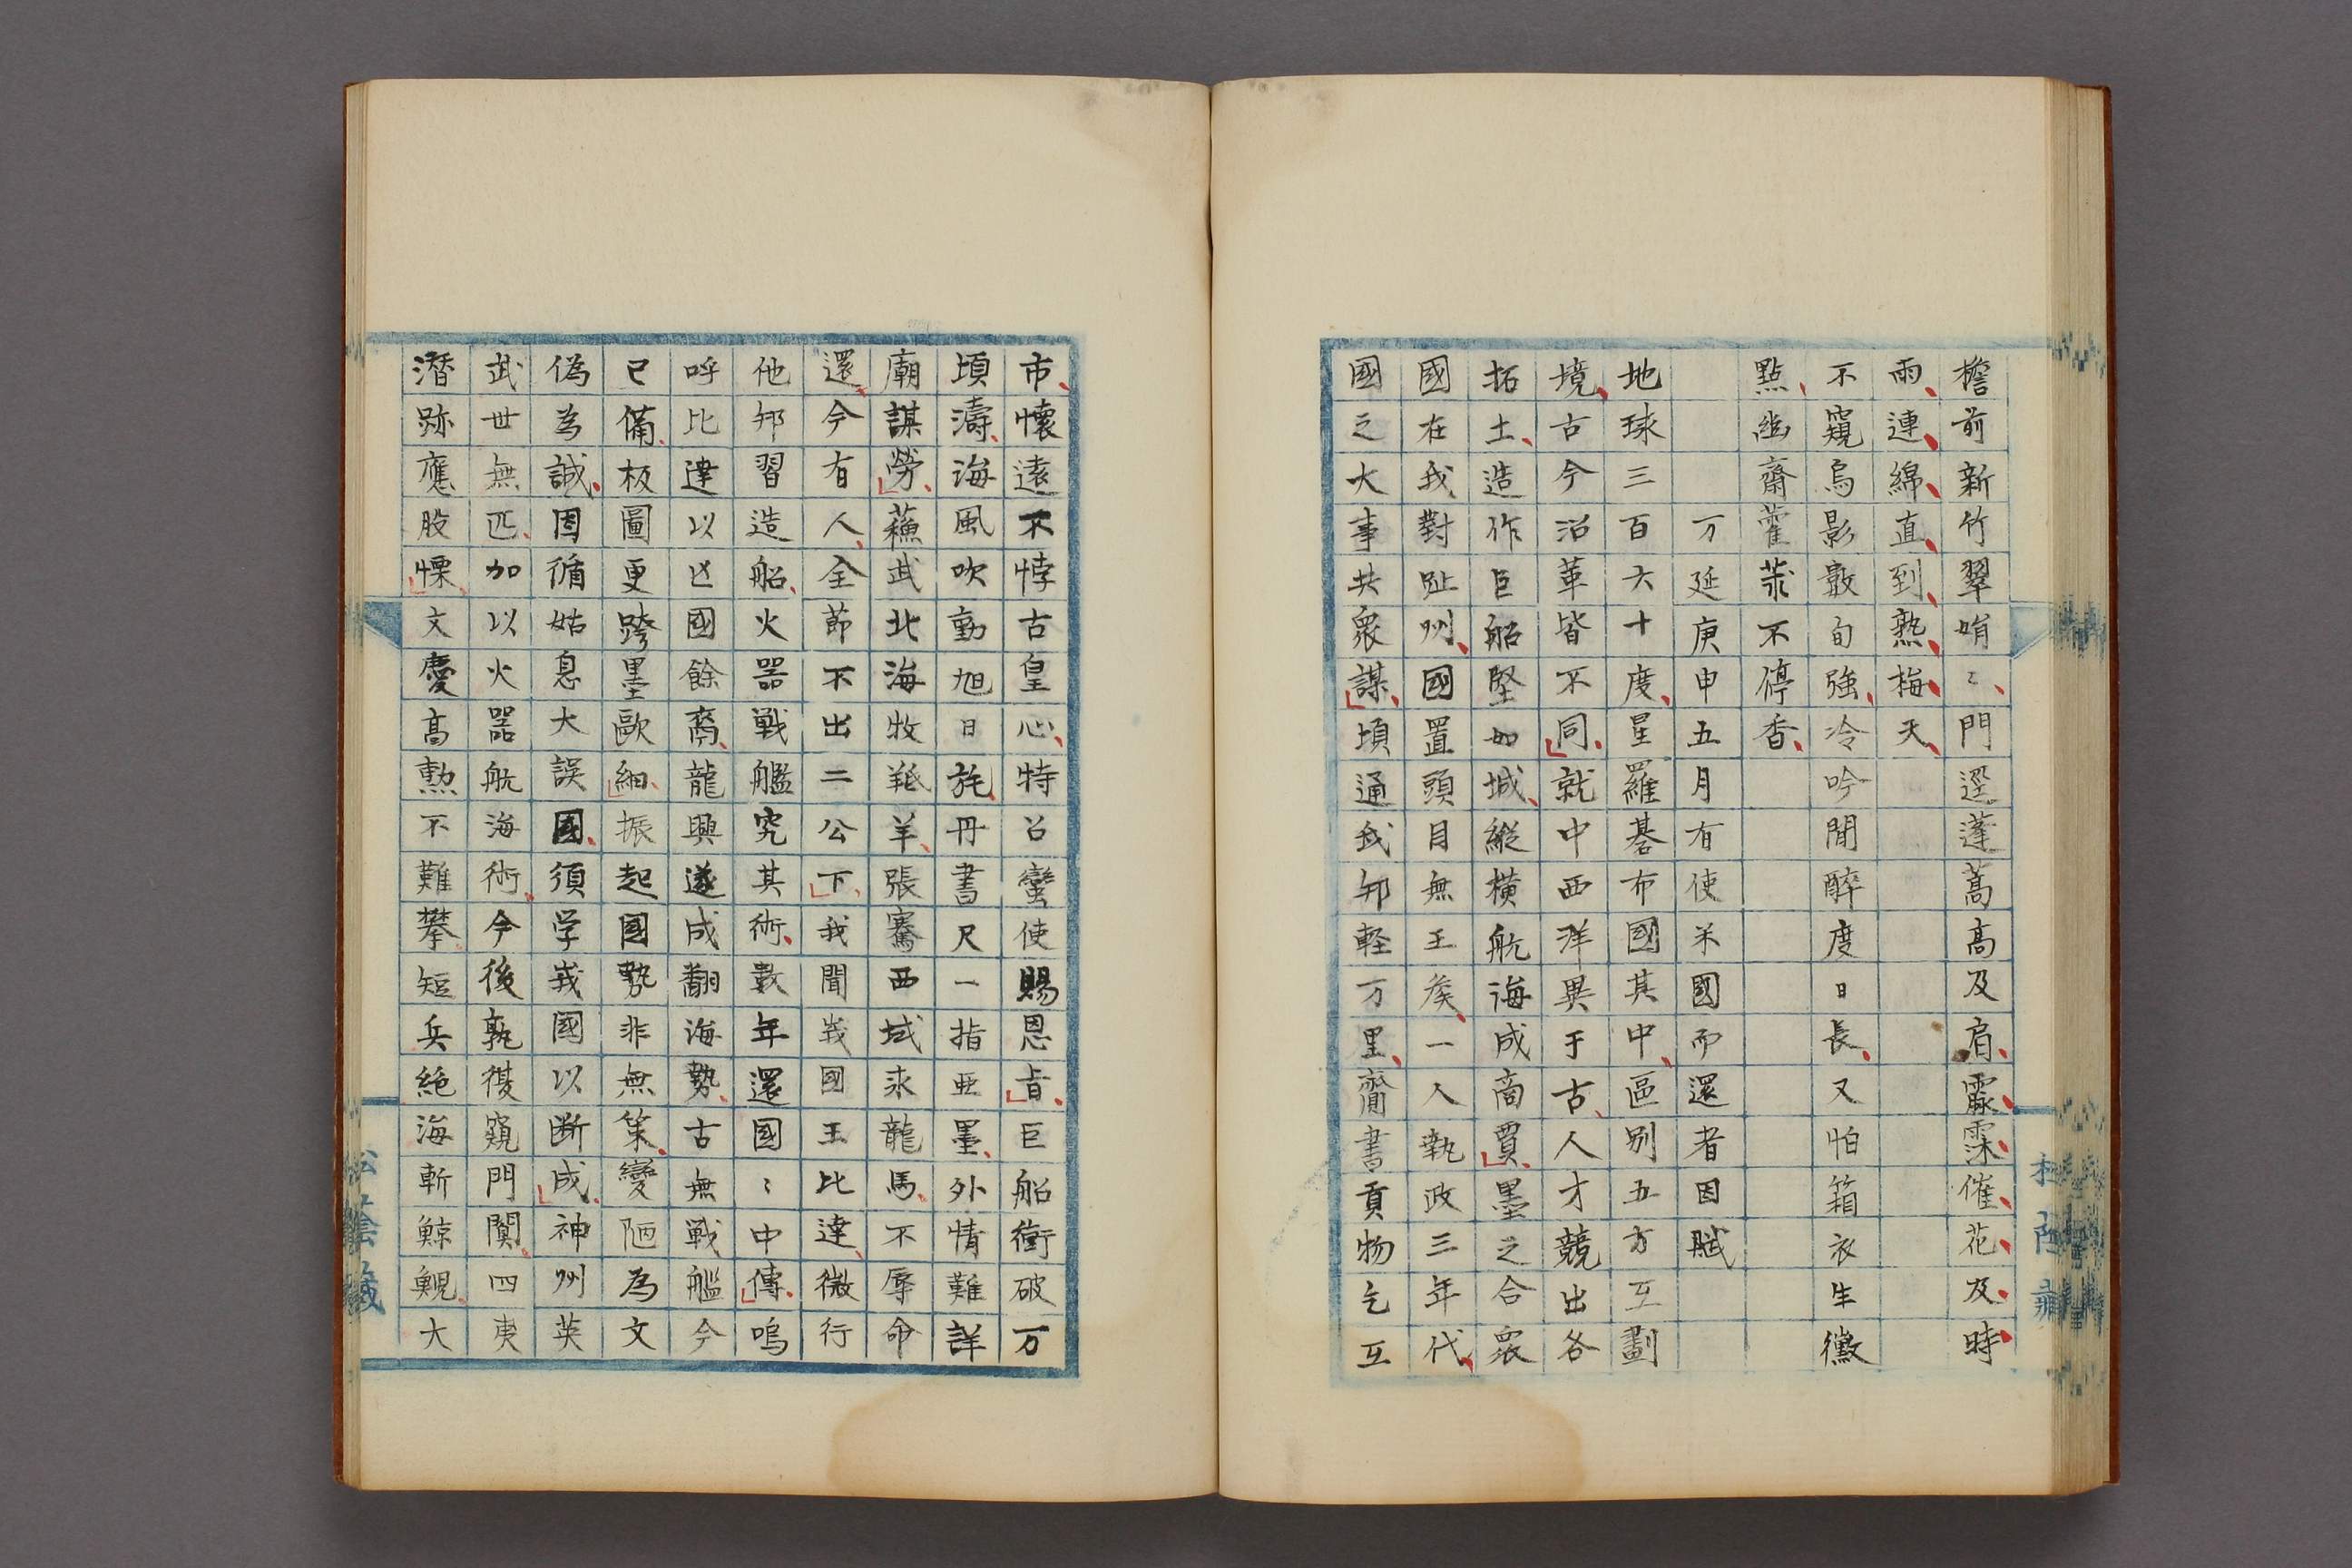 檐前新竹翠娟〻門逕蓬蒿高及肩霢霂催花及時
雨連綿直到熟梅天
不窺烏影數旬強冷吟閒醉度日長又怕箱衣生黴
點幽齋藿蒳不停香
万延庚申五月有使米國而還者因賦
地球三百六十度星羅碁布國其中區別五方互劃
境古今沿革皆不同就中西洋異于古人才競出各
拓土造作巨船堅如城縱橫航海成商賈墨之合衆
國在我對趾州國置頭目無王矦一人執政三年代
國之大事共衆謀頃通我邦軽万里齎書貢物乞互
市懷遠不悖古皇心特召蠻使賜恩旨巨船衝破万
頃濤海風吹動旭日旄丹書尺一指亜墨外情難詳
廟謀勞蘓武北海牧羝羊張騫西域求龍馬不辱命
還今有人全節不出二公下我聞峩國王比達微行
他邦習造船火器戰艦究其術數年還國〻中傳嗚
呼比達以亡國餘裔龍興遂成翻海勢古無戦艦今
已備板圖更跨墨歐細振起國勢非無策變陋為文
偽為誠因循姑息大誤國須学峩國以断成神州英
武世無匹加以火器航海術今後孰復窺門闑四夷
潛跡應股慄文慶高勲不難攀短兵絶海斬鯨鯢大